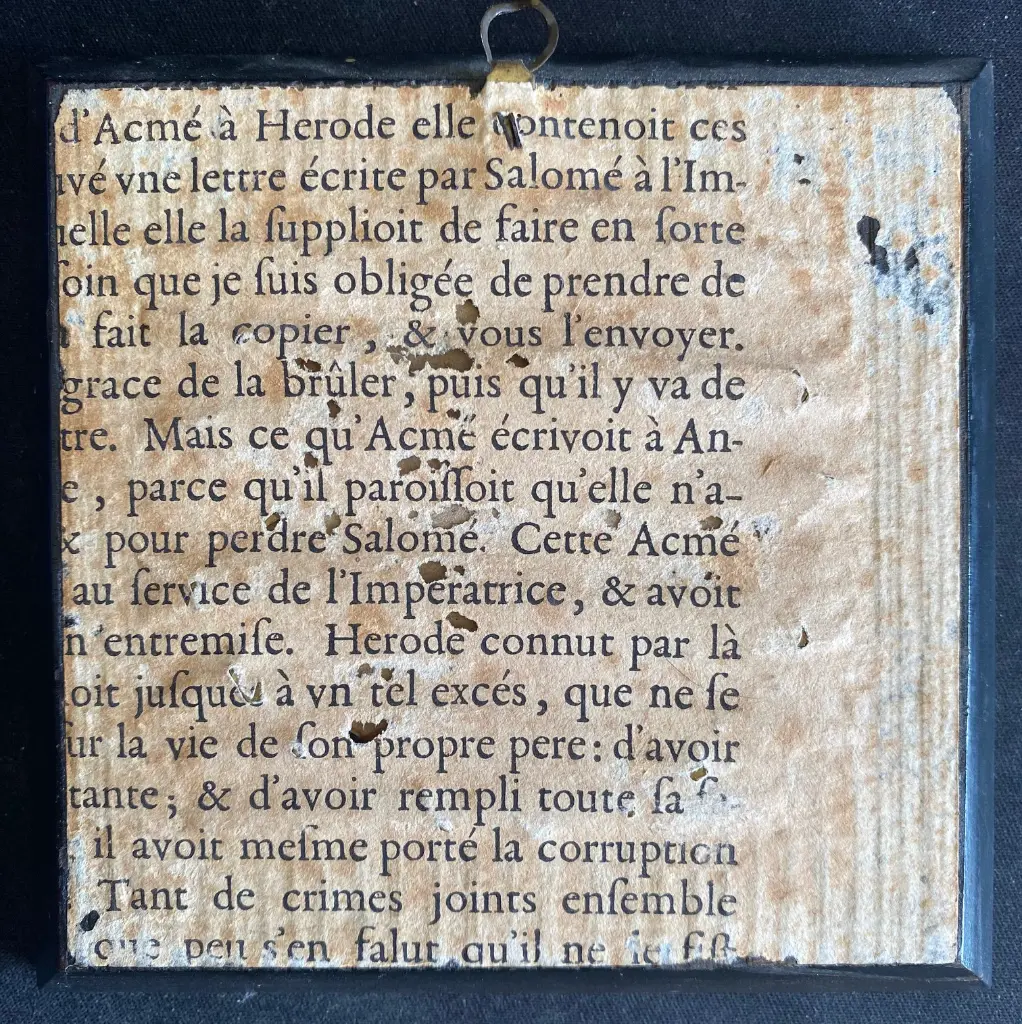 d'Acmé à Herode elle contenoit ces
uvé vne lettre écrite par Salomé à l'Im-
uelle elle la ſupplioit de faire en ſorte
ſoin que je ſuis obligée de prendre de
fait la copier, & vous l'envoyer.
grace de la brûler, puis qu'il y va de
tre. Mais ce qu'Acmé écrivoit à An-
e, parce qu'il paroiſſoit qu'elle n'a-
x pour perdre Salomé. Cette Acmé
au ſervice de l'Imperatrice, & avoit
n entremiſe. Herode connut par là
oit juſques à vn tel excés, que ne ſe
ur la vie de ſon propre pere: d'avoir
tante; & d'avoir rempli toute ſa
il avoit meſme porté la corruption
Tant de crimes joints enſemble
que peu s'en falut qu'il ne